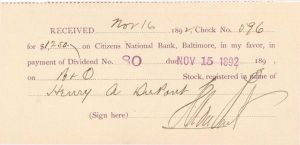 RECEIVED Nov 16 1892. Check No. 696
for $17.50 on Citizens National Bank, Baltimore, in my favor, in
payment of Dividend No. 80 due NOV 15 1892 189 ,
on B & O Stock, registered in name of
Henry A DuPont
(Sign here)